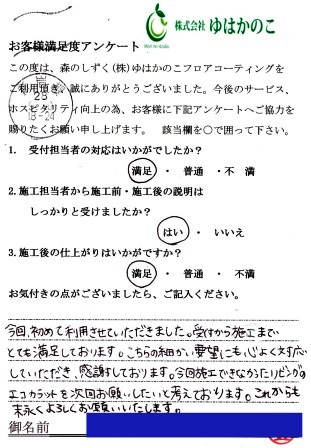 株式会社 ゆはかのこ
お客様満足度アンケート
この度は、森のしずく(株)ゆはかのこフロアコーティングを
ご利用頂き、誠にありがとうございました。今後のサービス、
ホスピタリティ向上の為、お客様に下記アンケートへご協力を
賜りたくお願い申し上げます。 該当欄を○で囲って下さい。
1. 受付担当者の対応はいかがでしたか?
満足 ・ 普通 ・不 満
2.施工担当者から施工前・施工後の説明は
しっかりと受けましたか?
はい ・ いいえ
3.施工後の仕上がりはいかがですか?
満足 ・ 普通 ・ 不満
お気付きの点がございましたら、ご記入ください。
今回、初めて利用させていただきました。受付から施工まで
とても満足しております。こちらの細かい要望にも心よく対応
していただき、感謝しております。今回施工できなかったリビングの
エコカラットを次回お願いしたいと考えております。これからも
末永くよろしくお願いいたします。
御名前